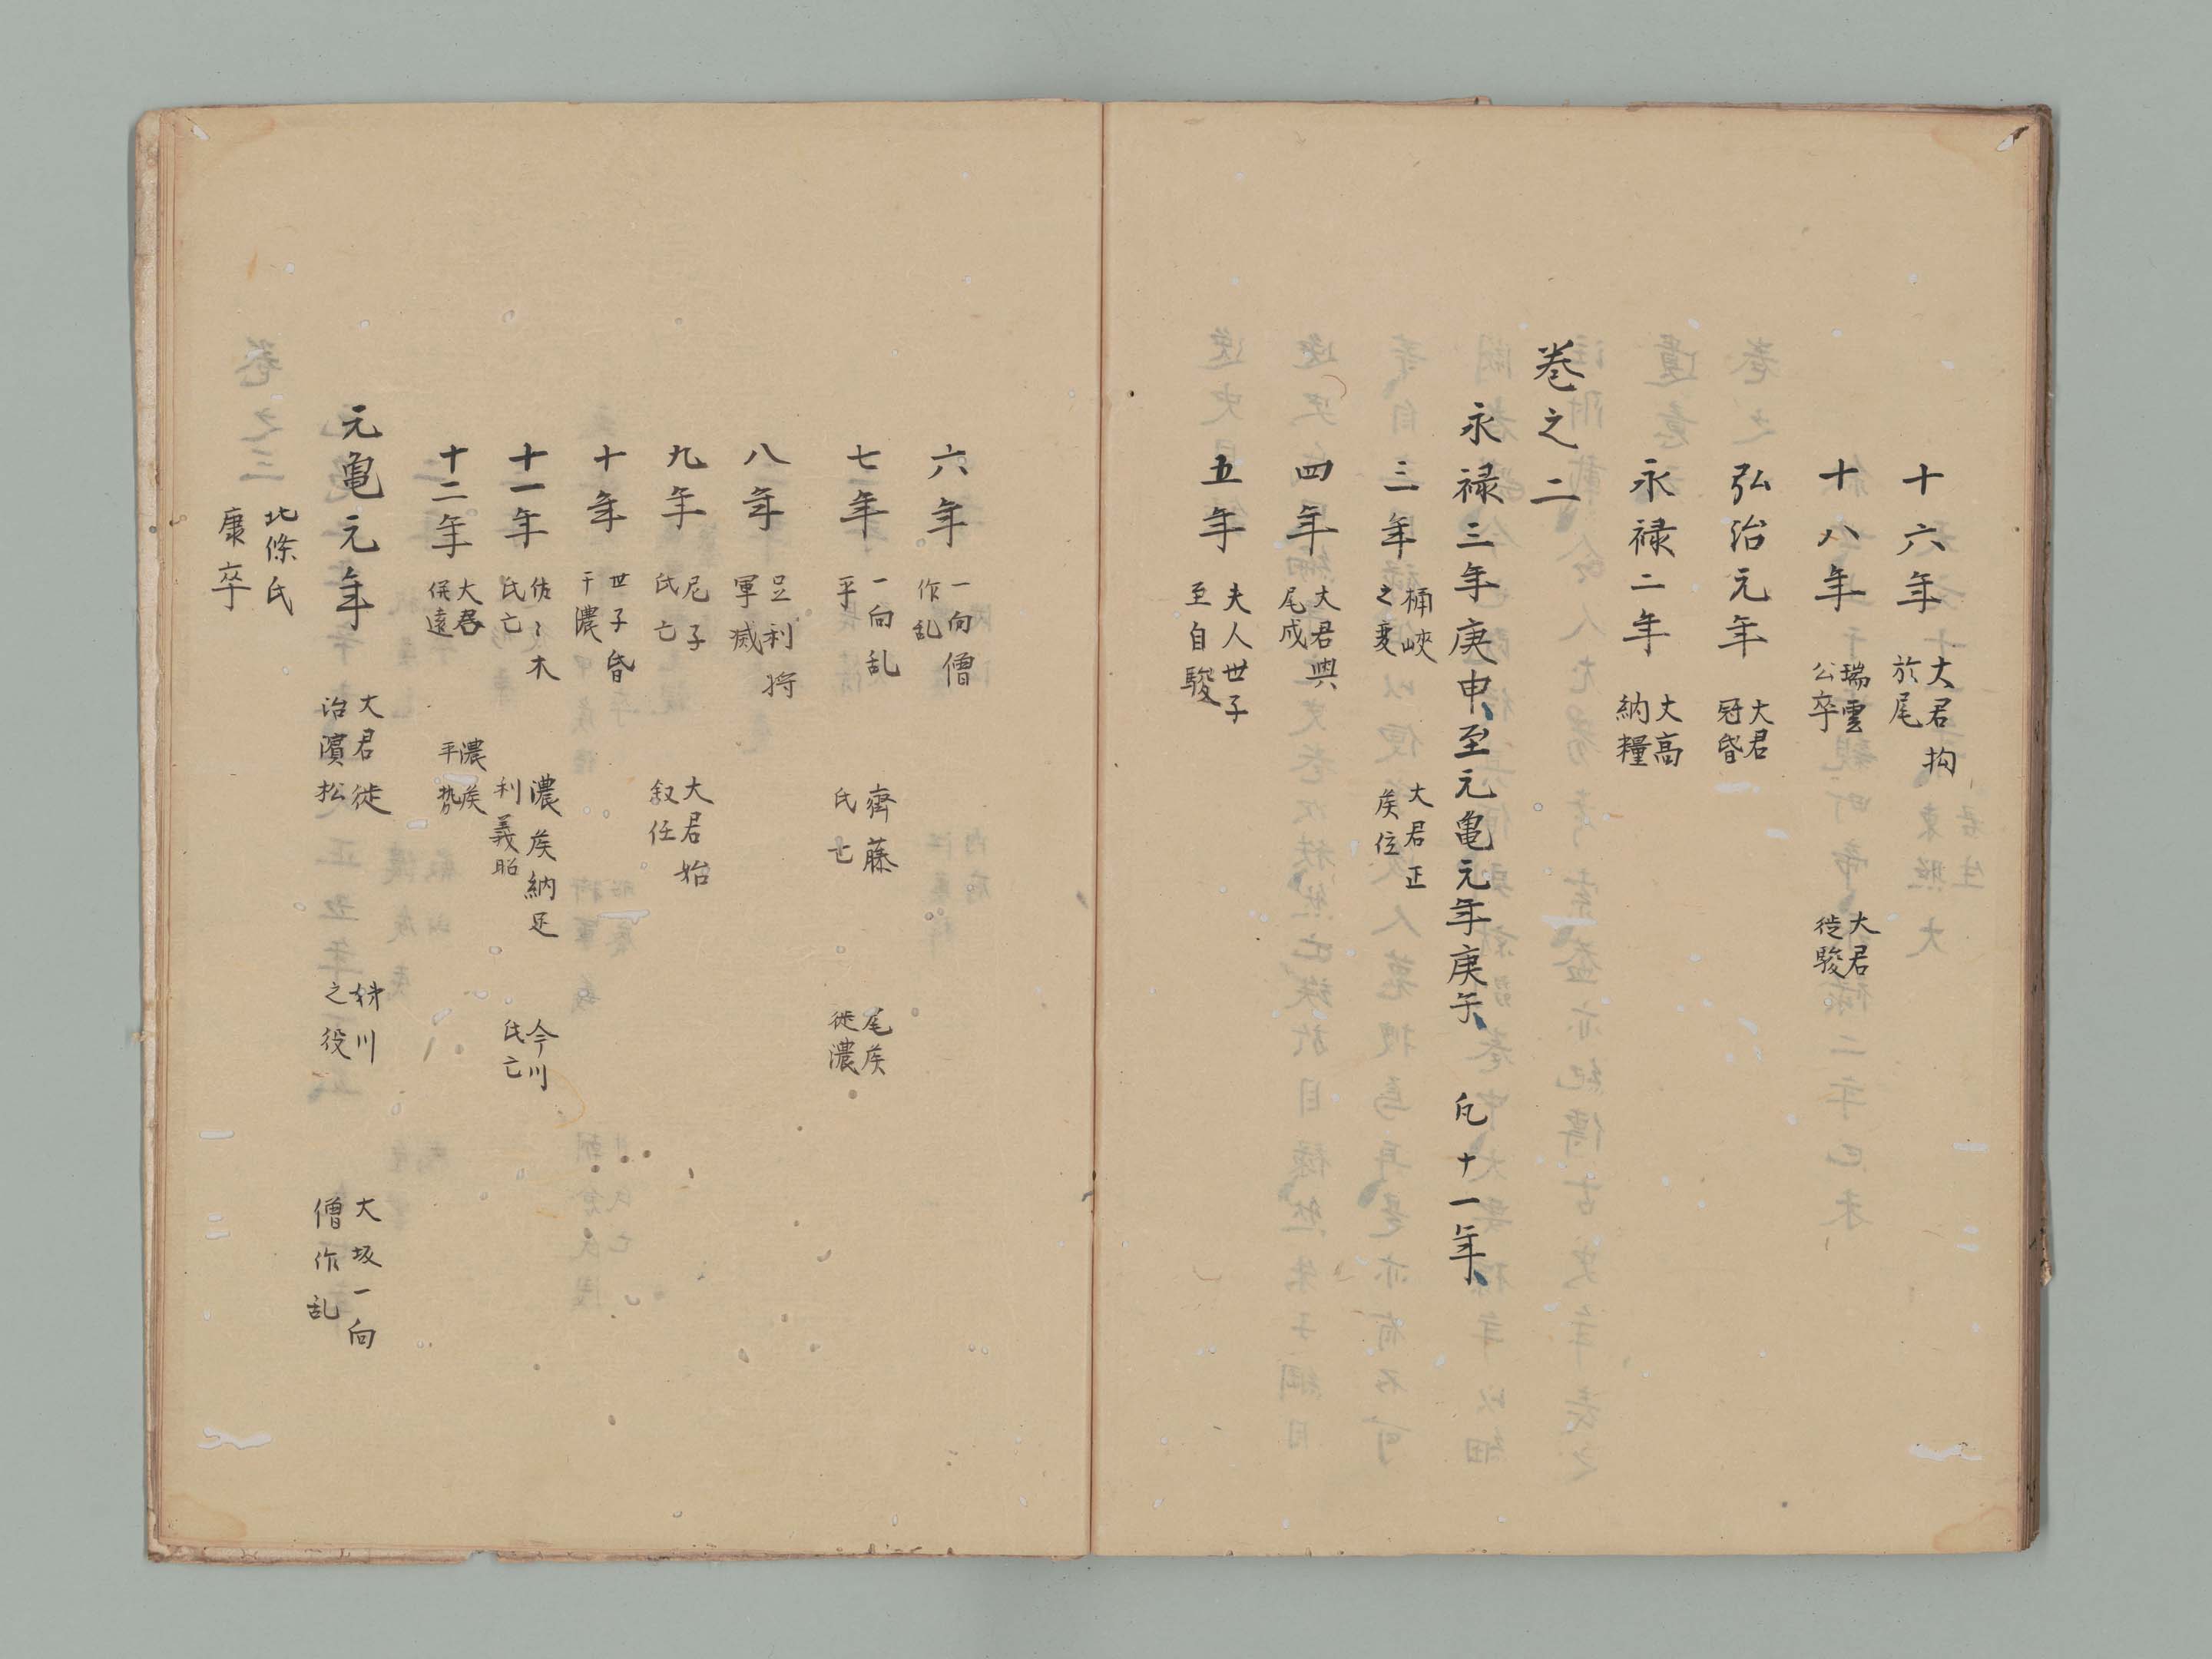 十六年 大君拘於尾
十八年 瑞雲公卒 大君徙駿
弘治元年 大君冠昏
永禄二年 大高納糧
巻之二
永禄三年庚申、至元亀元年庚午、凡十一年、
三年 桶峽之変 大君正矦位
四年 大君與尾成
五年 夫人世子至自駿
六年 一向僧作乱
七年 一向乱平 齊藤氏亡 尾矦徙濃
八年 足利将軍滅
九年 尼子氏亡 大君始叙任
十年 世子昏于濃
十一年 佐々木氏亡 濃矦納足利義昭 今川氏亡
十二年 大君併遠 濃矦平勢
元亀元年 大君徙治濵松 姉川之役 大坂一向僧作乱
北條氏康卒